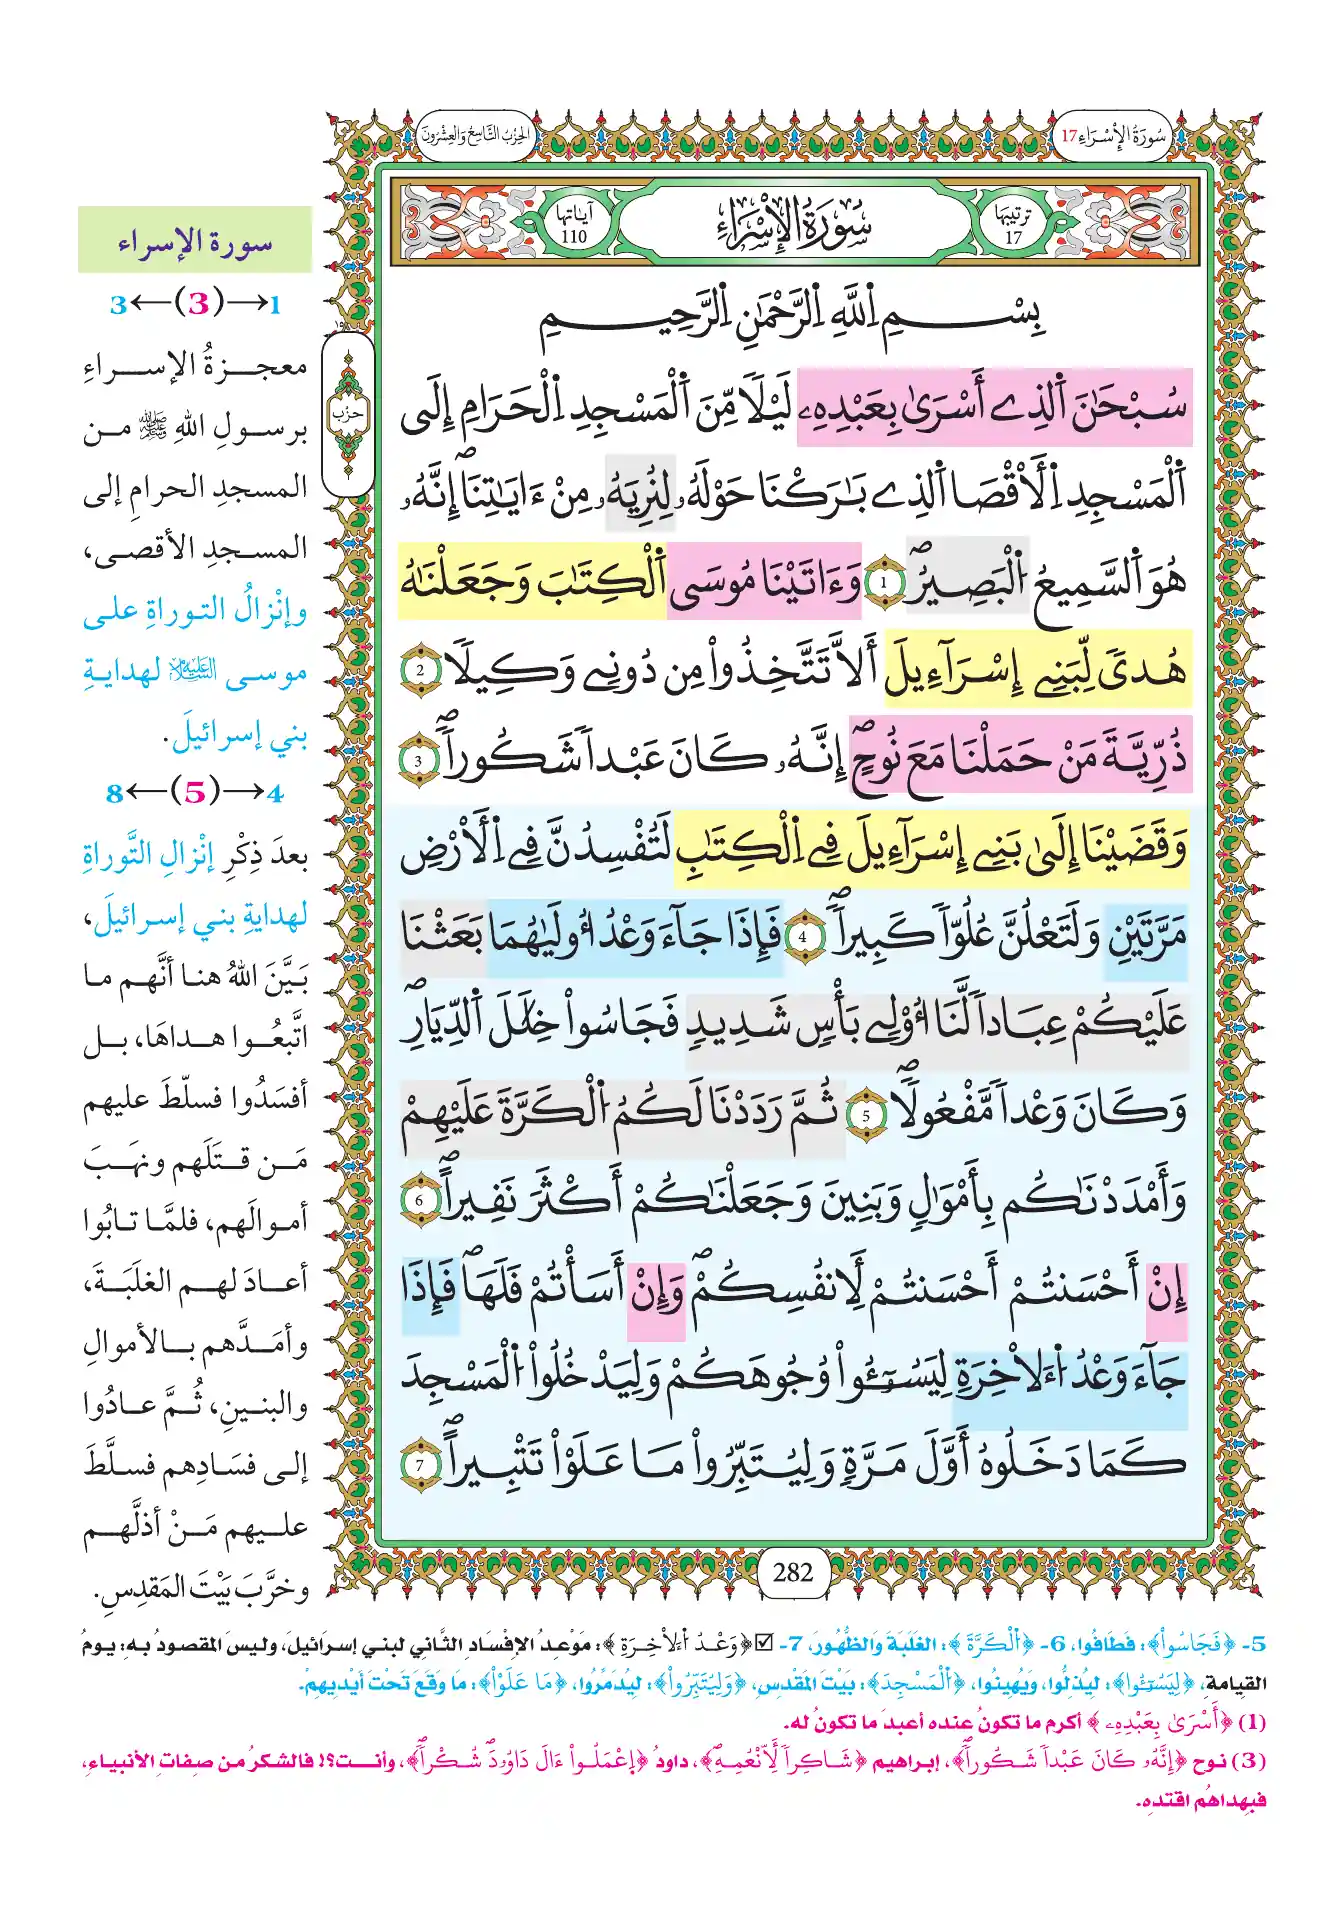 سُورَةُ الإِسْرَاءِ 17
الحِزْبُ التَّاسِعُ وَالعِشْرُونَ
ترتيبها 17
سُورَةُ الإِسْرَاءِ
آياتها 110
بِسْمِ اِللَّهِ اِلرَّحْمَٰنِ اِلرَّحِيمِ
سُبْحَٰنَ اَلذِے أَسْرَىٰ بِعَبْدِهِۦ لَيْلاٗ مِّنَ اَلْمَسْجِدِ اِلْحَرَامِ إِلَى
اَلْمَسْجِدِ اِلْأَقْصَا اَلذِے بَٰرَكْنَا حَوْلَهُۥ لِنُرِيَهُۥ مِنْ ءَايَٰتِنَاۖ إِنَّهُۥ
هُوَ اَلسَّمِيعُ اُلْبَصِيرُۖ 1 وَءَاتَيْنَا مُوسَى اَلْكِتَٰبَ وَجَعَلْنَٰهُ
هُدىٗ لِّبَنِے إِسْرَآءِيلَ أَلَّا تَتَّخِذُواْ مِن دُونِے وَكِيلاٗ 2
ذُرِّيَّةَ مَنْ حَمَلْنَا مَعَ نُوحٍۖ إِنَّهُۥ كَانَ عَبْداٗ شَكُوراٗۖ 3
وَقَضَيْنَا إِلَىٰ بَنِے إِسْرَآءِيلَ فِے اِلْكِتَٰبِ لَتُفْسِدُنَّ فِے اِلْأَرْضِ
مَرَّتَيْنِ وَلَتَعْلُنَّ عُلُوّاٗ كَبِيراٗۖ 4 فَإِذَا جَآءَ وَعْدُ أُولَىٰهُمَا بَعَثْنَا
عَلَيْكُمْ عِبَاداٗ لَّنَا أُوْلِے بَأْسٖ شَدِيدٖ فَجَاسُواْ خِلَٰلَ اَلدِّيَارِۖ
وَكَانَ وَعْداٗ مَّفْعُولاٗۖ 5 ثُمَّ رَدَدْنَا لَكُمُ اُلْكَرَّةَ عَلَيْهِمْ
وَأَمْدَدْنَٰكُم بِأَمْوَٰلٖ وَبَنِينَ وَجَعَلْنَٰكُمْ أَكْثَرَ نَفِيراٗۖ 6
إِنْ أَحْسَنتُمْ أَحْسَنتُمْ لِأَنفُسِكُمْۖ وَإِنْ أَسَأْتُمْ فَلَهَاۖ فَإِذَا
جَآءَ وَعْدُ اُءَلَاخِرَةِ لِيَسُـُٔواْ وُجُوهَكُمْ وَلِيَدْخُلُواْ اُلْمَسْجِدَ
كَمَا دَخَلُوهُ أَوَّلَ مَرَّةٖ وَلِيُتَبِّرُواْ مَا عَلَوْاْ تَتْبِيراًۖ 7
282
حزب
سورة الإسراء
1←(3)→3
معجزةُ الإسراءِ
برسولِ اللهِ ﷺ من
المسجدِ الحرامِ إلى
المسجدِ الأقصى،
وإنْزالُ التوراةِ على
موسى عليه السلام لهدايةِ
بني إسرائيلَ.
4←(5)→8
بعدَ ذِكْرِ إنْزالِ التَّوراةِ
لهدايةِ بني إسرائيلَ،
بَيَّنَ اللهُ هنا أنَّهم ما
اتَّبعُوا هداهَا، بل
أفسَدُوا فسلّطَ عليهم
مَن قتَلَهم ونهَبَ
أموالَهم، فلمَّا تابُوا
أعادَ لهم الغلَبَةَ،
وأمَدَّهم بالأموالِ
والبنينِ، ثُمَّ عادُوا
إلى فسَادِهم فسلَّطَ
عليهم مَنْ أذلَّهم
وخرَّبَ بَيْتَ المَقدِسِ.
5- ﴿فَجَاسُواْ﴾: فَطَافُوا، 6- ﴿اَلْكَرَّةَ﴾: الغَلَبَةَ وَالظُّهُورَ، 7- ☑ ﴿وَعْدُ اُءَلَاخِرَةِ﴾: مَوْعِدُ الإِفْسَادِ الثَّانِي لبني إسرَائيلَ، وليسَ المقصودُ به: يومُ
القِيامة، ﴿لِيَسُـُٔواْ﴾: ليُذِلُّوا، وَيُهِينُوا، ﴿اَلْمَسْجِدَ﴾: بَيْتَ المَقْدِسِ، ﴿وَلِيُتَبِّرُواْ﴾: ليُدَمِّرُوا، ﴿مَا عَلَوْاْ﴾: مَا وَقَعَ تَحْتَ أَيْدِيهِمْ.
(1) ﴿أَسْرَىٰ بِعَبْدِهِۦ﴾ أكرم ما تكونُ عنده أعبدَ ما تكونُ له.
(3) نوح ﴿إِنَّهُۥ كَانَ عَبْداٗ شَكُوراٗۖ﴾، إبراهيم ﴿شَاكِراٗ لِّأَنْعُمِهِۖ﴾، داودُ ﴿اِعْمَلُواْ ءَالَ دَاوُۥدَ شُكْراٗۖ﴾، وأنـت؟! فالشكرُ من صِفاتِ الأنبياءِ،
فبِهداهُم اقتدِهِ.